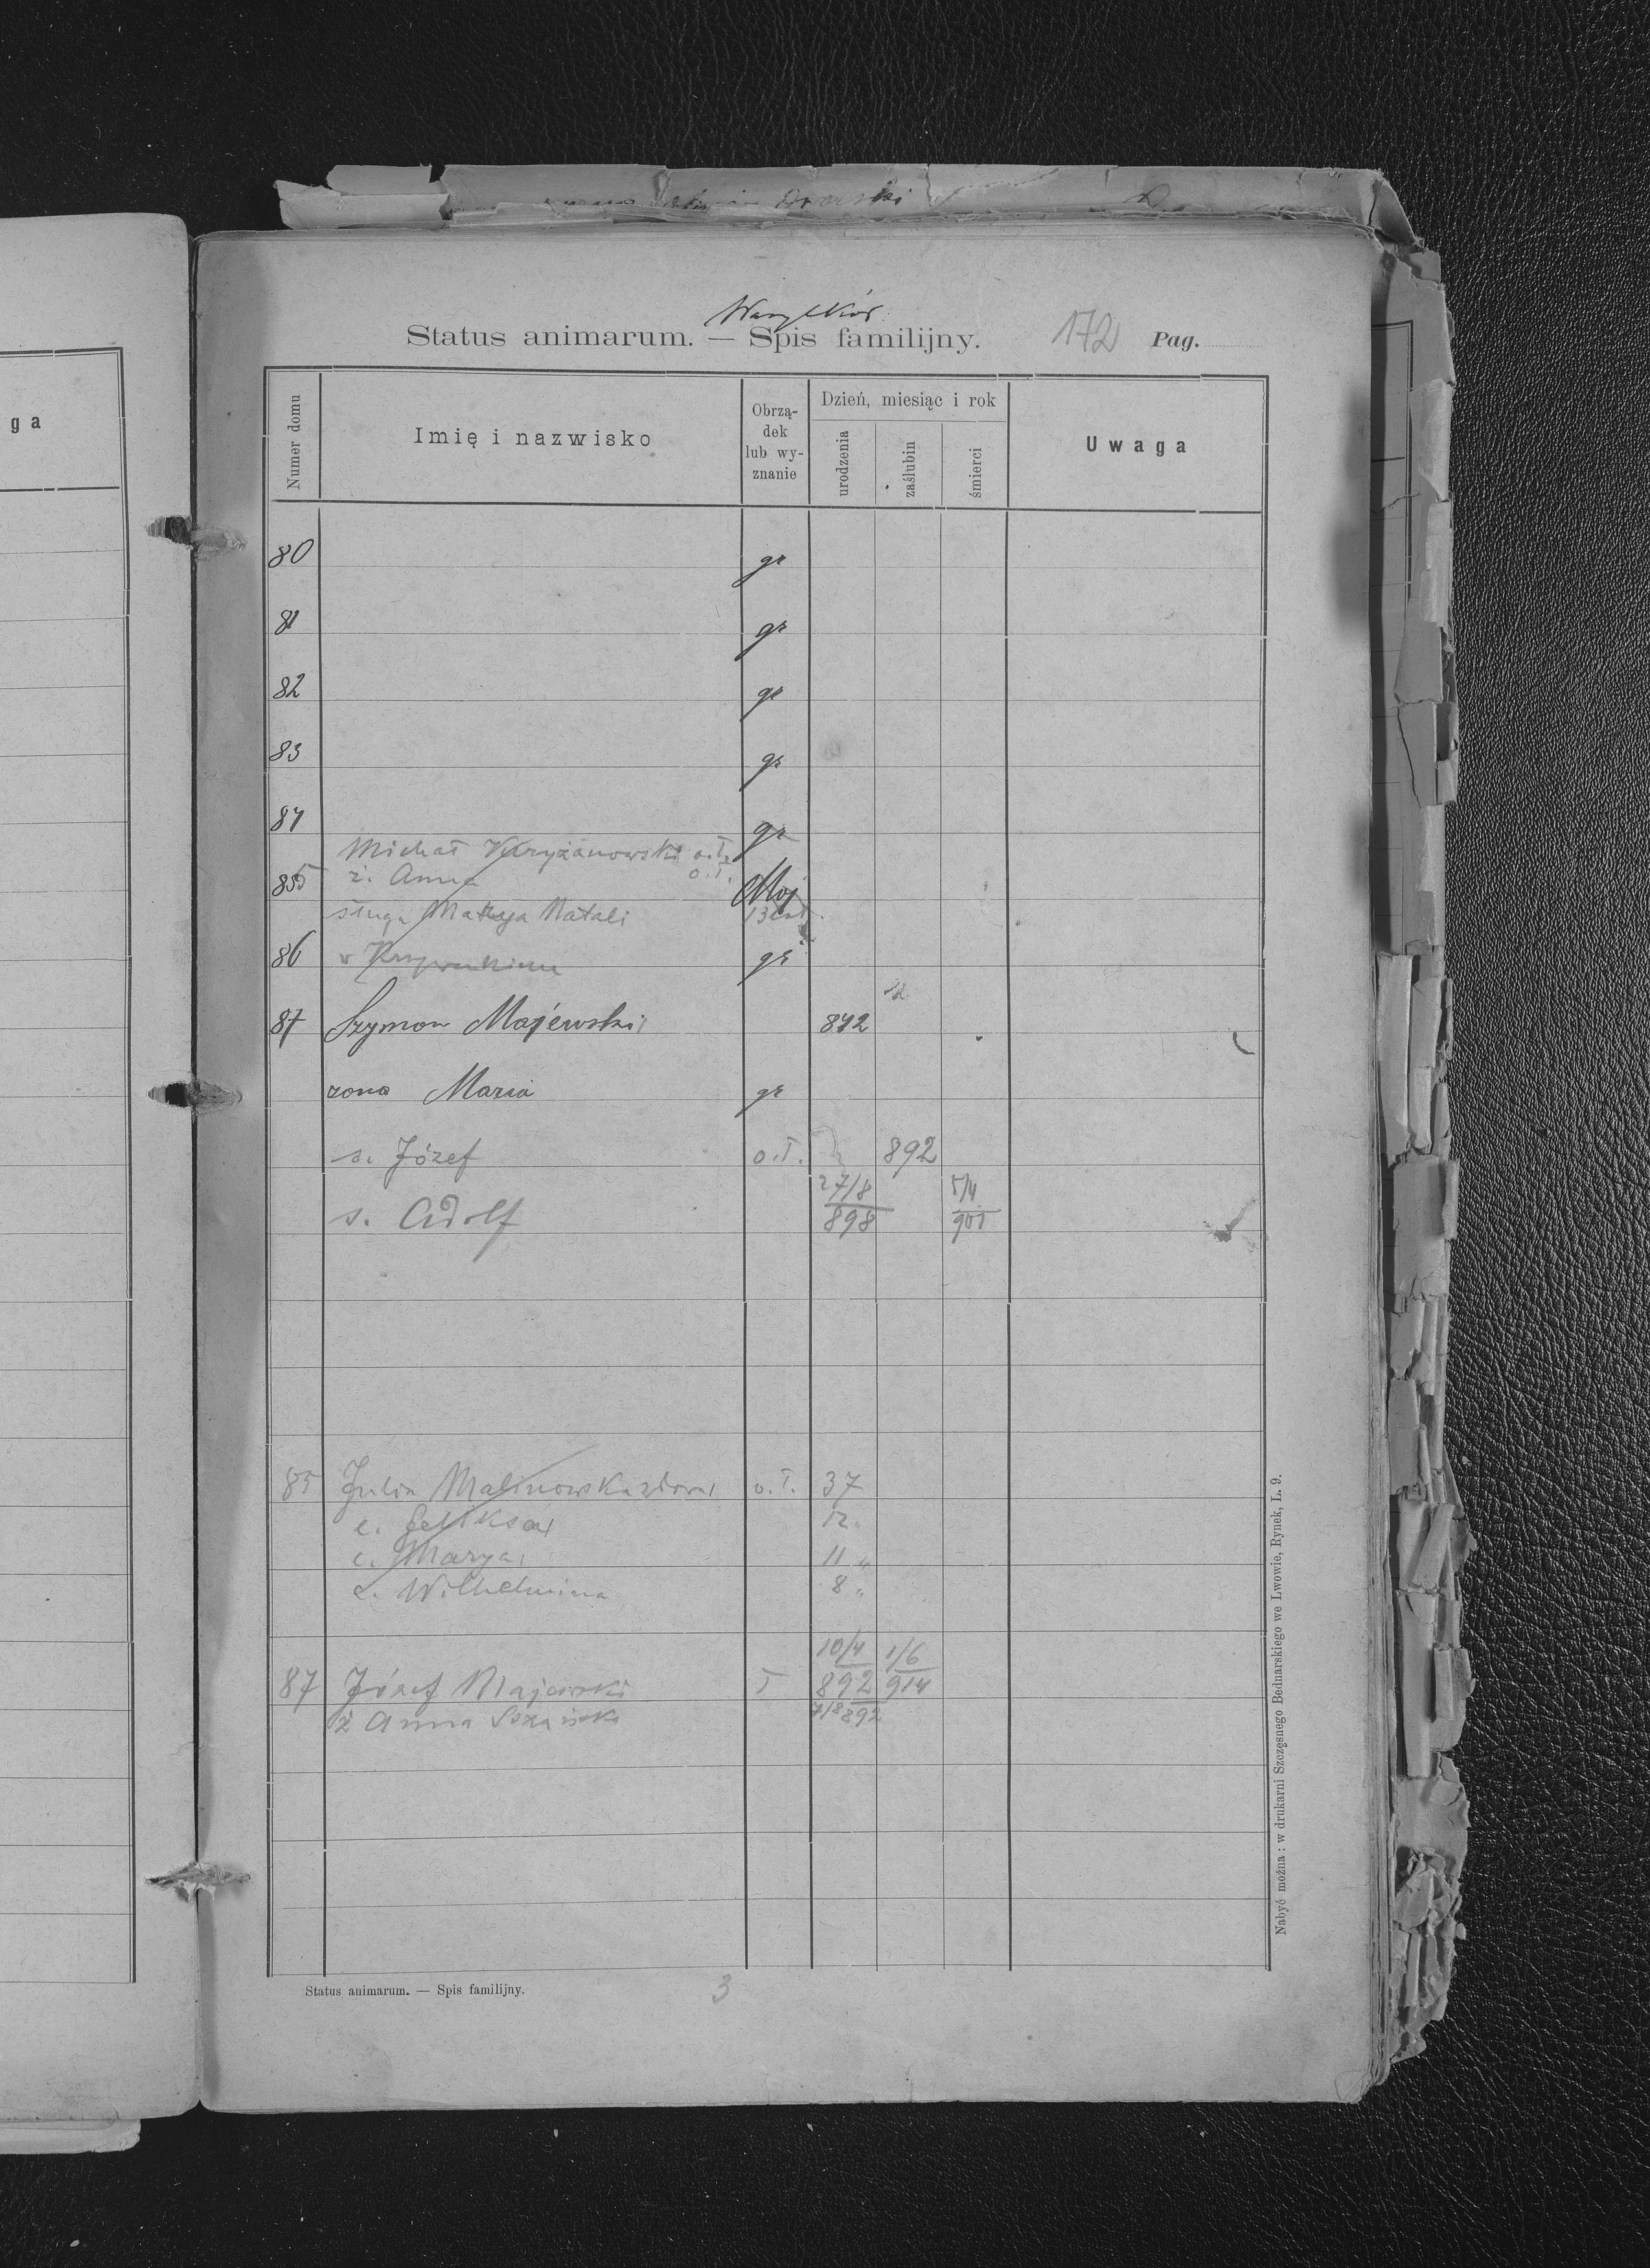 Dworski
Status animarum. — Spis familijny. 172 Pag.
ga
Numer domu
Imię i nazwisko
Obrzą-
dek
lub wy-
znanie
Dzień, miesiąc i rok
urodzenia
zaślubin
śmierci
Uwaga
80 gr
81 gr
82 gr
83 gr
84 gr
Michał Kryżanowski o.ł.
85 ż. Anna o.ł. Moj
sługa Marya Natali
86 gr
87 Szymon Majewski 872
zona Maria gr
s. Józef o.ł. 892
27/8 5/4
s. Adolf 898 901
85 Julia Malinowska wdowa o.ł. 37
c. Feliksa 12
c. Marya 11 „
c. Wilhelmina 8 „
10/4 1/6
87 Józef Majewski ł 892 914
ż Anna 7/8 892
Status animarum. — Spis familijny.
3
Nabyć można: w drukarni Szczęsnego Bednarskiego we Lwowie, Rynek, L. 9.